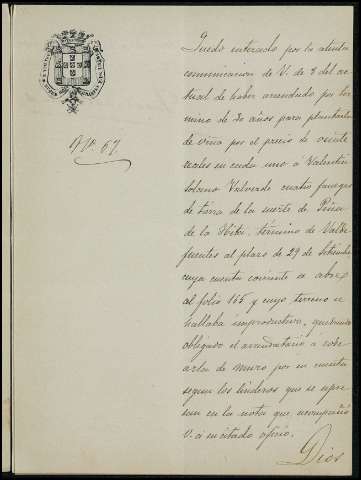 Nº 67
Quedo enterado por la atenta
comunicacion de V. de 8 del ac
tual de haber arrendado por ter
mino de 30 años para plantarla
de viña por el precio de veinte
reales en cada uno á Valentin
Solano Valverde cuatro fanegas
de tierra de la suerte de
de la término de Valde
fuentes al plazo de 29 de Setiembre
cuya cuenta corriente se abre
al folio 165 y cuyo terreno se
hallaba improductivo, quedando
obligado el arrendatario a
de muro por su cuenta
segun los linderos que se espre
san en la nota que acompañó
V. á su citado oficio.
Dios